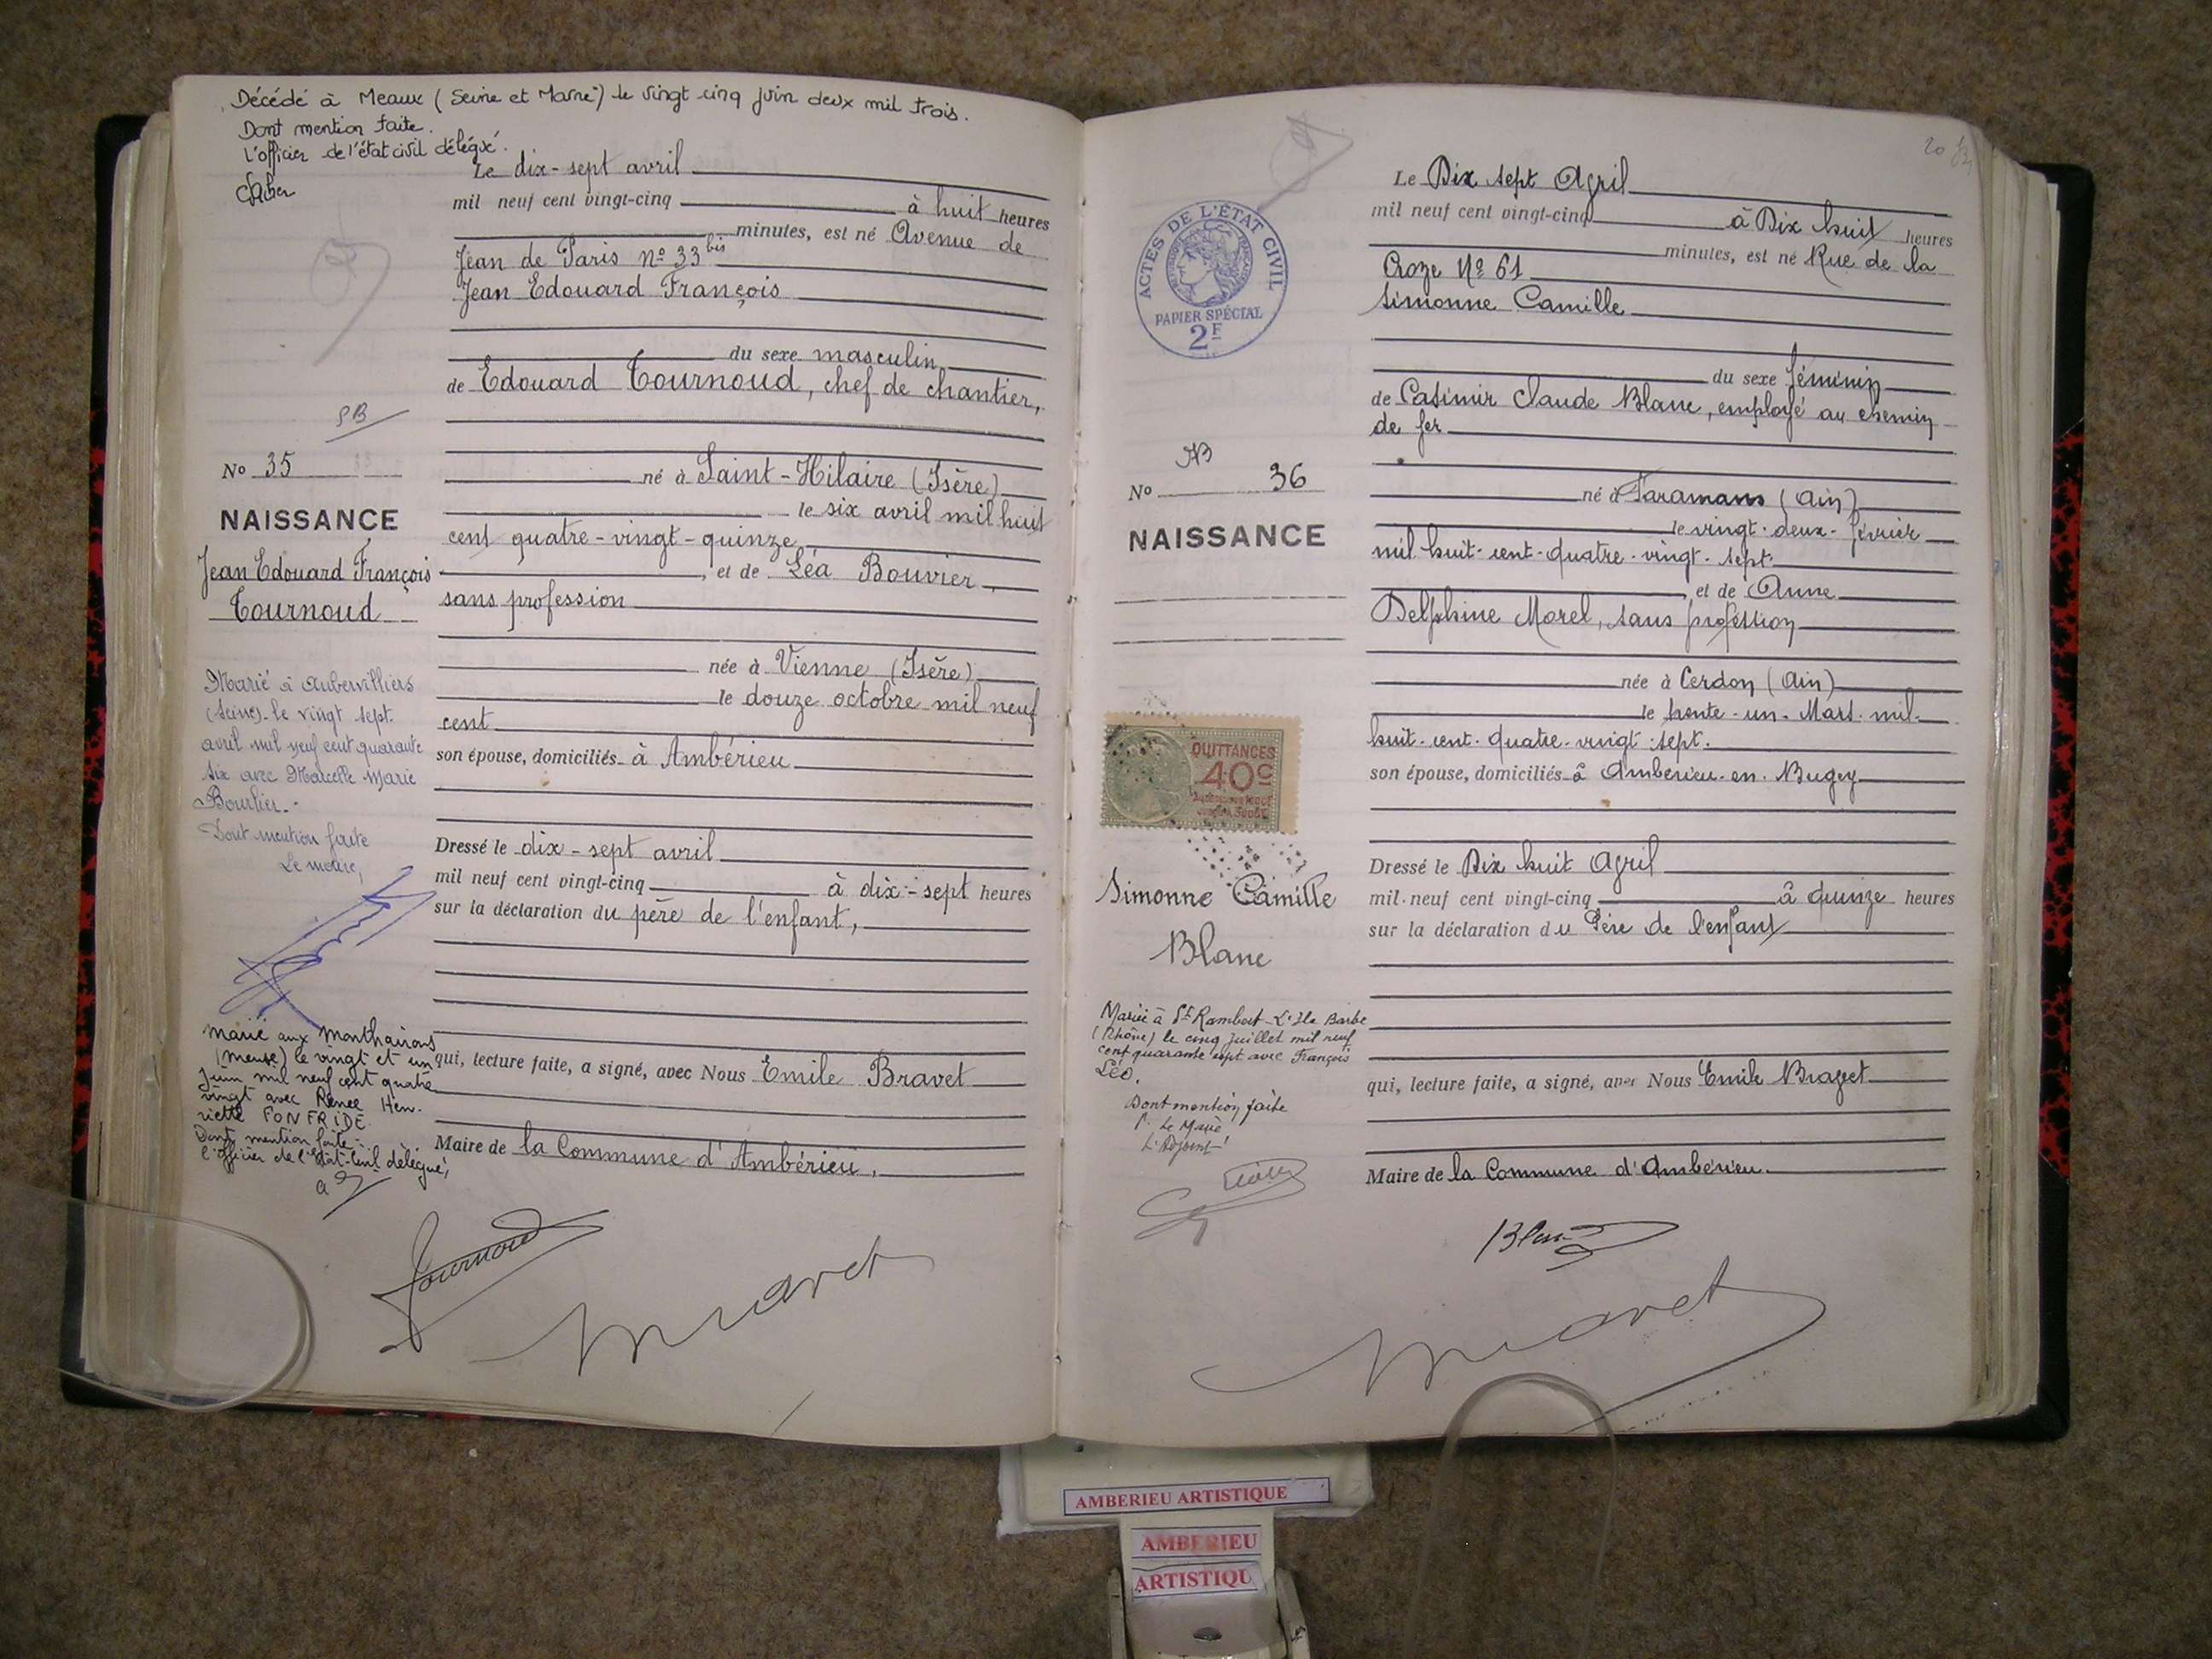 Décédé à Meaux (Seine et Marne) le vingt cinq juin deux mil trois.
Dont mention faite.
L'officier de l'état civil délégué.
Le dix-sept avril
mil neuf cent vingt-cinq à huit heures
minutes, est né Avenue de
Jean de Paris nº 33 bis
Jean Edouard François
du sexe masculin
de Edouard Tournoud, chef de chantier,
PB
No 35
né à Saint-Hilaire (Isère)
le six avril mil huit
NAISSANCE
cent quatre-vingt-quinze
Jean Edouard François
, et de Léa Bouvier,
Tournoud
sans profession
née à Vienne (Isère)
le douze octobre mil neuf
cent
son épouse, domiciliés à Ambérieu
Marié à Aubervilliers
(Seine) le vingt sept
avril mil neuf cent quarante
six avec Marcelle Marie
Bourlier.-
Dont mention faite
Le maire,
Dressé le dix-sept avril
mil neuf cent vingt-cinq à dix-sept heures
sur la déclaration du père de l'enfant,
Marié aux Monthairons
(Meuse) le vingt et un
juin mil neuf cent quatre
vingt avec Renée Hen-
riette FONFRIDE.
Dont mention faite.
l'officier de l'Etat-Civil délégué,
qui, lecture faite, a signé, avec Nous Emile Bravet
Maire de la Commune d'Ambérieu,
Tournoud
Bravet
20
Le Dix sept Avril
mil neuf cent vingt-cinq à Dix huit heures
minutes, est né Rue de la
Croze Nº 61
Simonne Camille
ACTES DE L'ÉTAT CIVIL
PAPIER SPÉCIAL
2F
du sexe féminin
de Casimir Claude Blanc, employé au chemin
de fer
No 36
né à Faramans (Ain)
le vingt-deux-février
NAISSANCE
mil-huit-cent-quatre-vingt-sept.
, et de Anne
Delphine Morel, sans profession
née à Cerdon (Ain)
le trente-un-Mars-mil-
huit-cent-quatre-vingt-sept.
son épouse, domiciliés à Ambérieu-en-Bugey
QUITTANCES
40c
Dressé le Dix huit Avril
mil neuf cent vingt-cinq à quinze heures
sur la déclaration du Père de l'enfant
Simonne Camille
Blanc
Mariée à St Rambert-L'Ile Barbe
(Rhône) le cinq juillet mil neuf
cent quarante sept avec François
Léo.
Dont mention faite
P. Le Maire
L'Adjoint
qui, lecture faite, a signé, avec Nous Emile Bravet
Maire de la Commune d'Ambérieu.
Blanc
Bravet
AMBERIEU ARTISTIQUE
AMBERIEU
ARTISTIQU